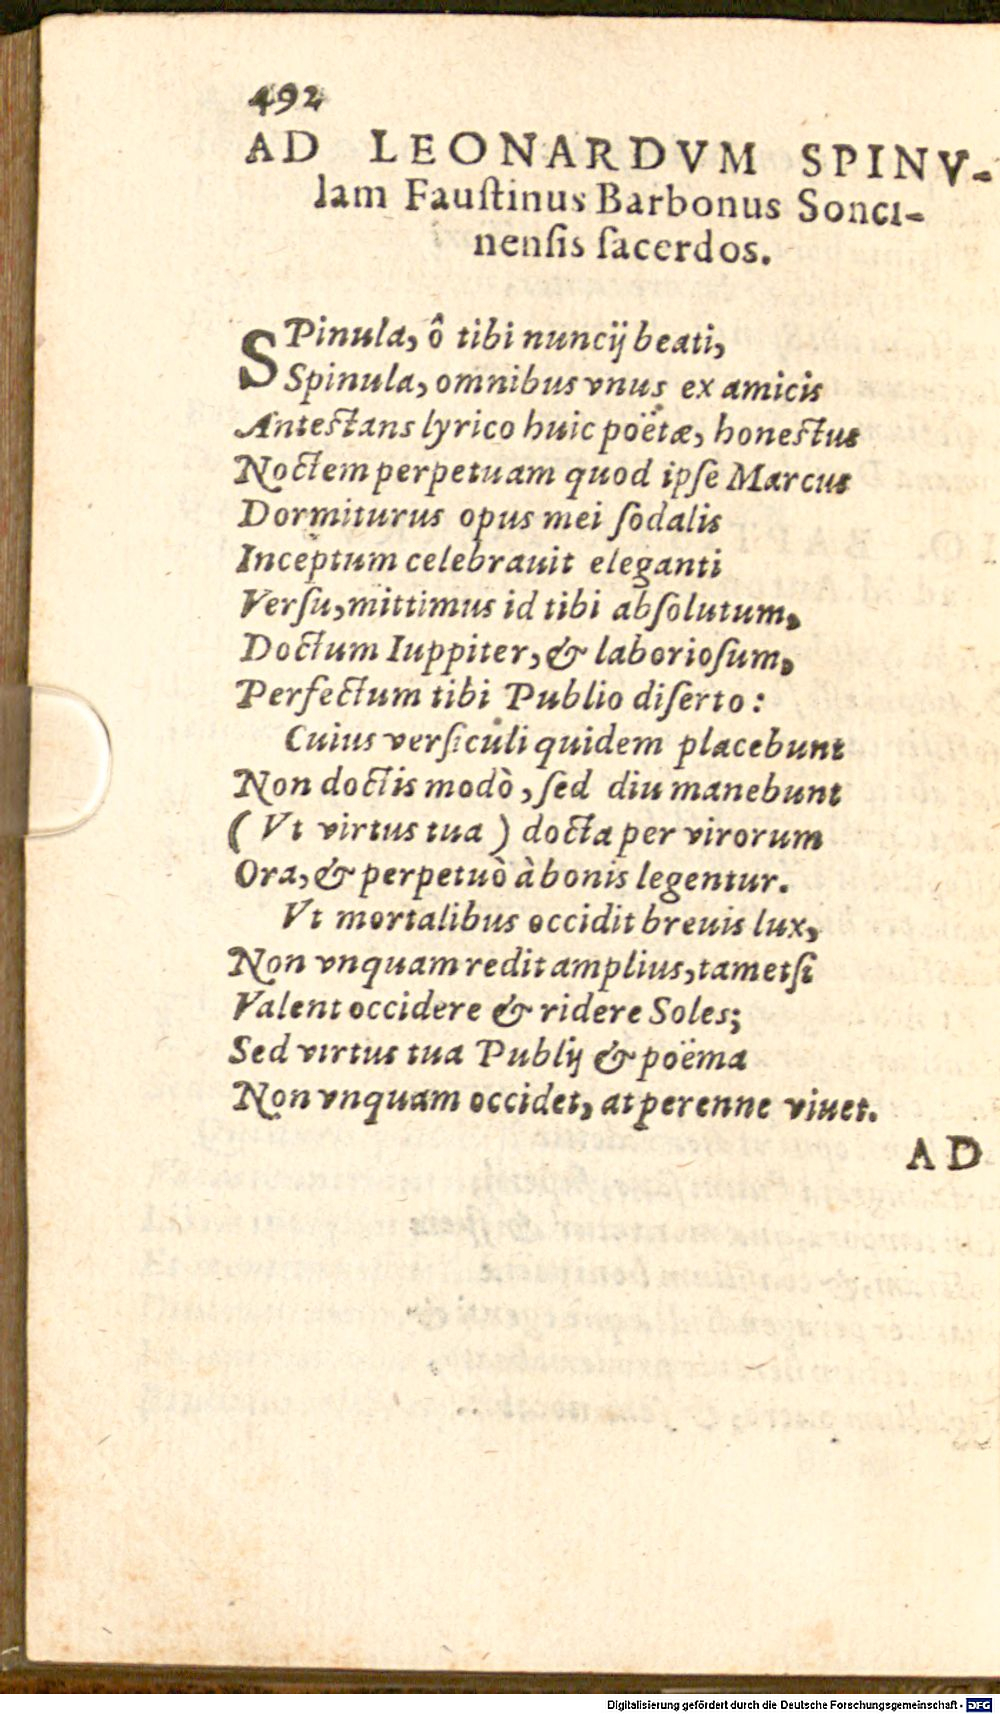 492
AD LEONARDVM SPINV-
lam Fauſtinus Barbonus Sonci-
nenſis ſacerdos.
SPinula, ô tibi nuncij beati,
Spinula, omnibus vnus ex amicis
Anteſtans lyrico huic poëtæ, honeſtus
Noctem perpetuam quod ipſe Marcus
Dormiturus opus mei ſodalis
Inceptum celebrauit eleganti
Verſu, mittimus id tibi abſolutum,
Doctum Iuppiter, & laborioſum,
Perfectum tibi Publio diſerto:
Cuius verſiculi quidem placebunt
Non doctis modò, ſed diu manebunt
(Vt virtus tua) docta per virorum
Ora, & perpetuò à bonis legentur.
Vt mortalibus occidit breuis lux,
Non vnquam redit amplius, tametſi
Valent occidere & ridere Soles;
Sed virtus tua Publij & poëma
Non vnquam occidet, at perenne viuet.
AD
Digitalisierung gefördert durch die Deutsche Forschungsgemeinschaft - DFG